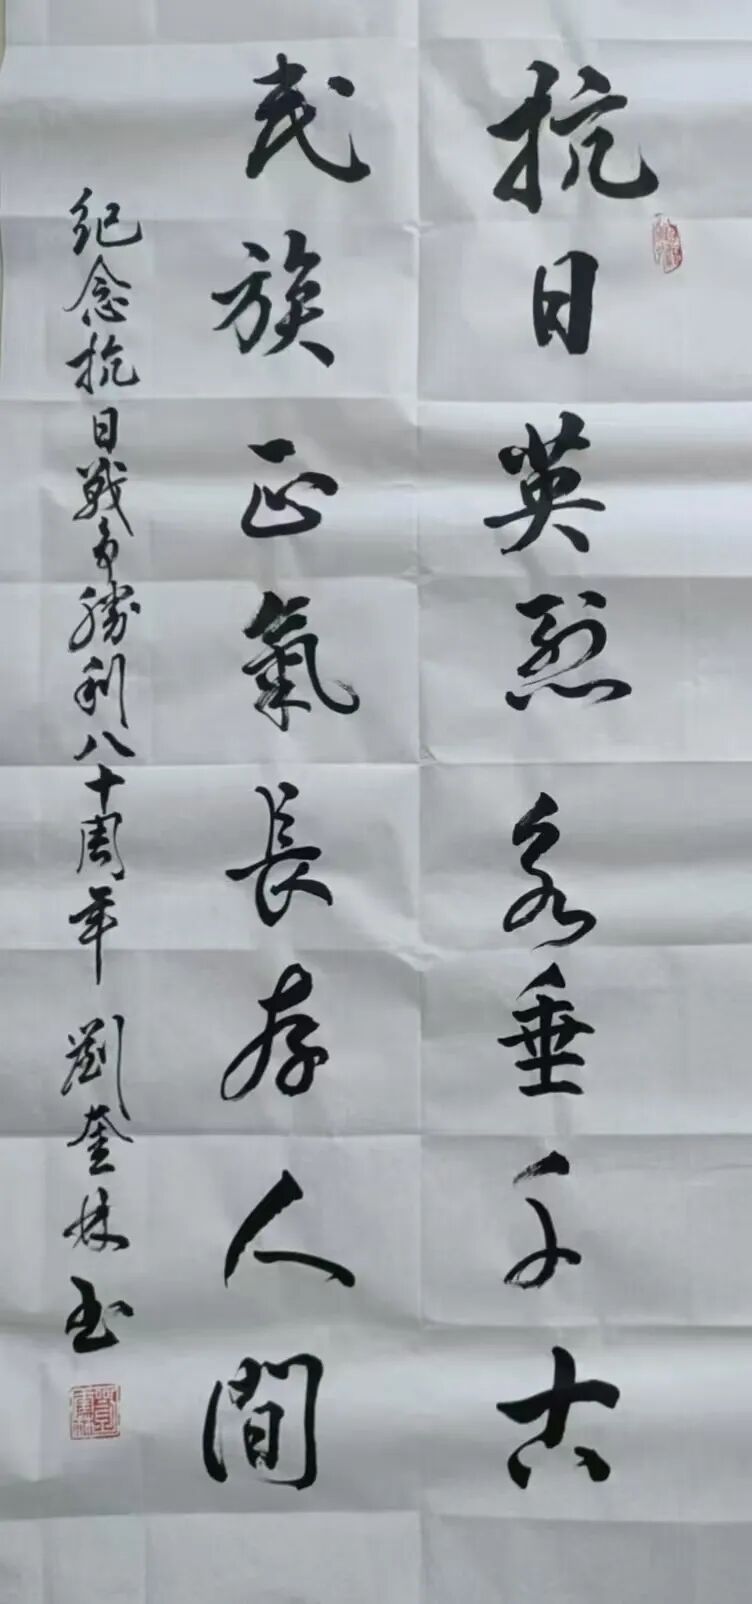 抗日英烈永垂千古
民族正氣長存人間
紀念抗日戰爭勝利八十周年 劉奎林书